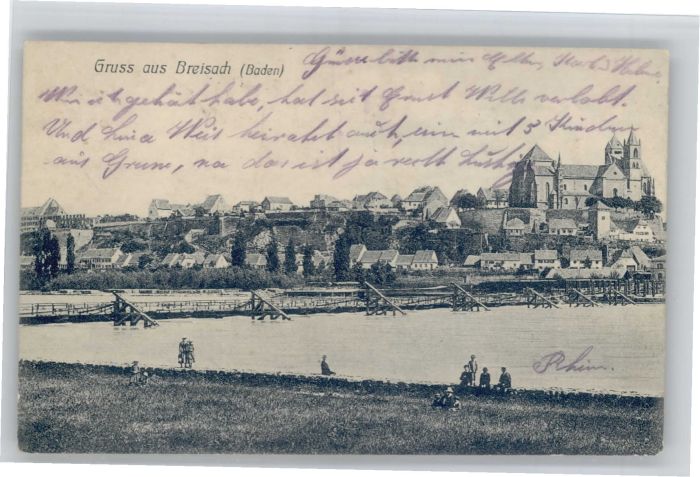 Gruss aus Breisach (Baden)
Grüsse bitte mir Eltern, Karl &
Wie ich gehört habe, hat sich Ernst Wills verlobt.
Und heiratet auch, ein mit 3 Kinder
aus Grune, na das ist ja recht lustig
Rhein.